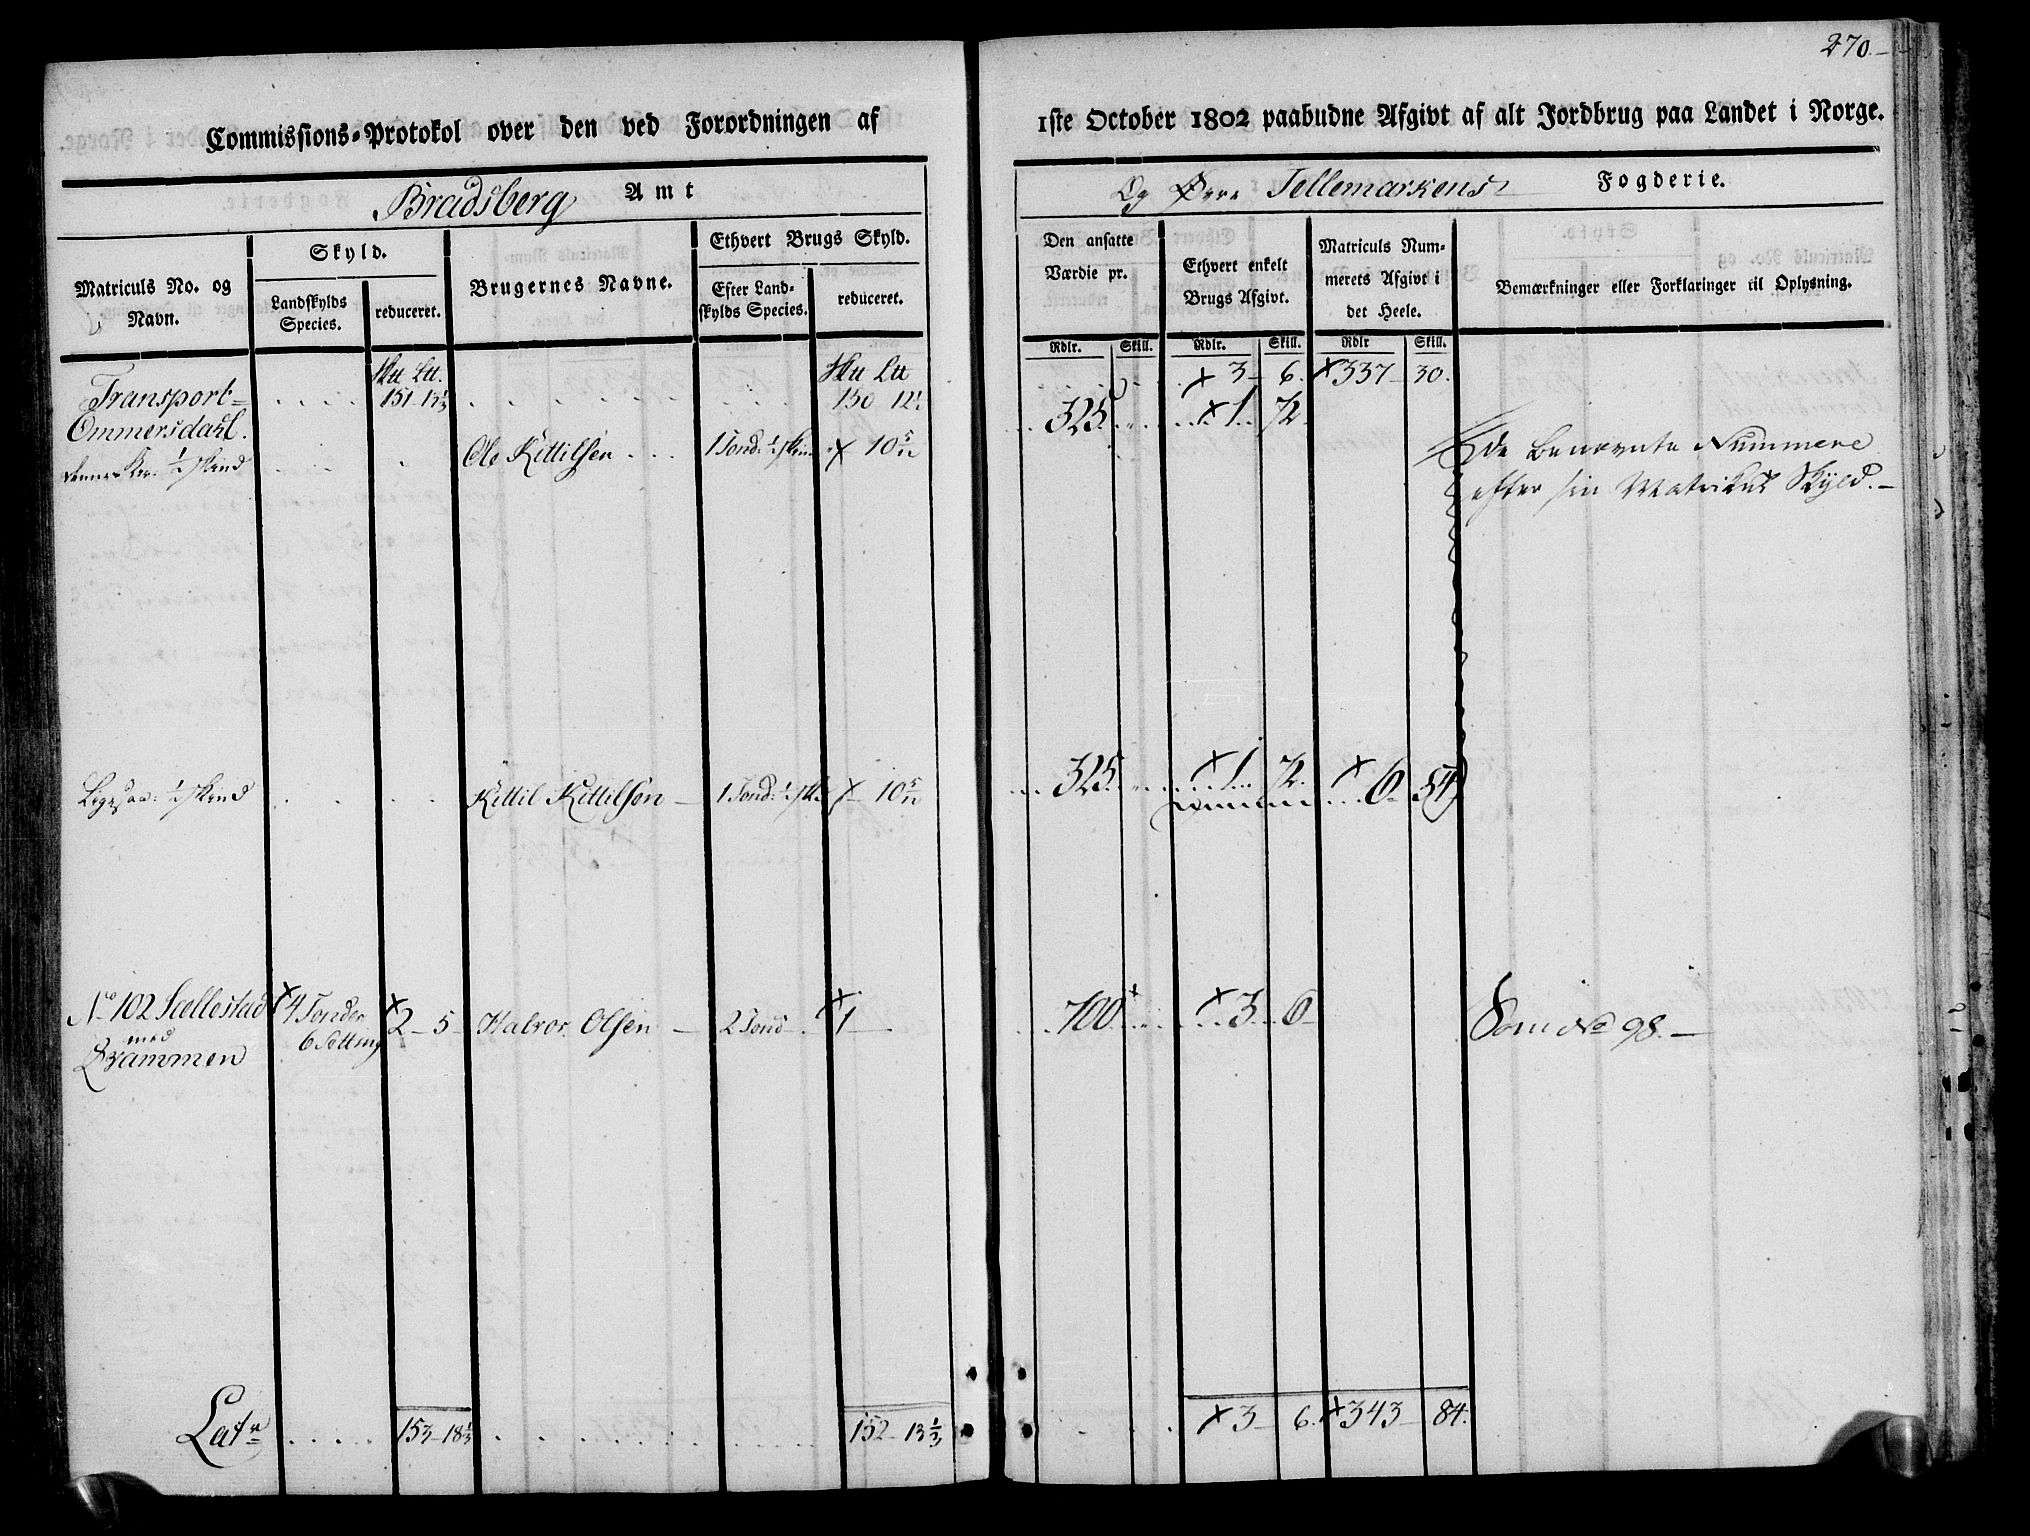 270.-
Commissions-Protokol over den ved Forordningen af
1ste October 1802 paabudne Afgivt af alt Jordbrug paa Landet i Norge.
Bradsberg Amt
Og Øvre Tellemarkens Fogderie.
Matriculs No. og Navn.
Skyld.
Landskylds Species.
reduceret.
Brugernes Navne.
Ethvert Brugs Skyld.
Efter Landskylds Species.
reduceret.
Den ansatte Værdie pr.
Ethvert enkelt Brugs Afgivt.
Matriculs Nummerets Afgivt i det Heele.
Bemærkninger eller Forklaringer til Oplysning.
Rdlr. Skill. Rdlr. Skill. Rdlr Skill.
Transport 151 - 13 1/3 150 12 1/2 3 - 6. 337 - 30.
Ommersdahl.
1/2 Skind Ole Kittilsen 1 Tond: 1/2 Skin 10 5/12 325 1 72
de benævnte Nummere
efter sin Matrikul Skyld. -
Ligesaa: 1/2 Skind Kittil Kittilsen - 1 Tond: 1/2 Sk: 10 5/12 325 1 72. 6 54
No 102 Sællestad 4 Tonder 2 - 5 - Halvor Olsen - 2 Tond 1 - 700 3 6 Som No 98. -
med 6 Setting
Qvammen
Lat 153 - 18 1/3 152 - 13 1/3 3 - 6. 343 - 84.